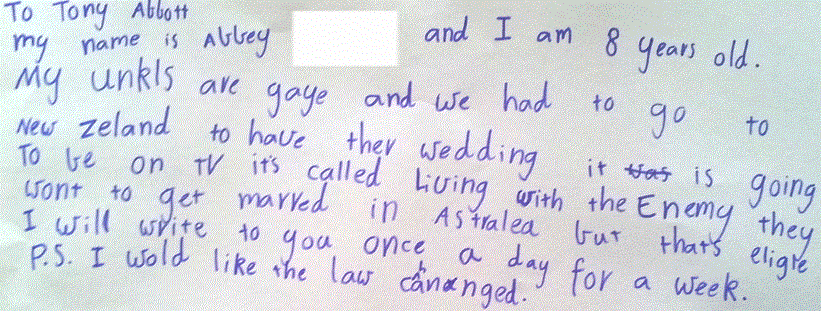 To Tony Abbott
my name is Abbey and I am 8 years old.
My unkls are gaye and we had to go to
New zeland to have ther wedding it is going
To be on TV it's called Living with the Enemy they
wont to get marred in Astralea but that's eligle
I will write to you once a day for a week.
P.S. I wold like the law changed.